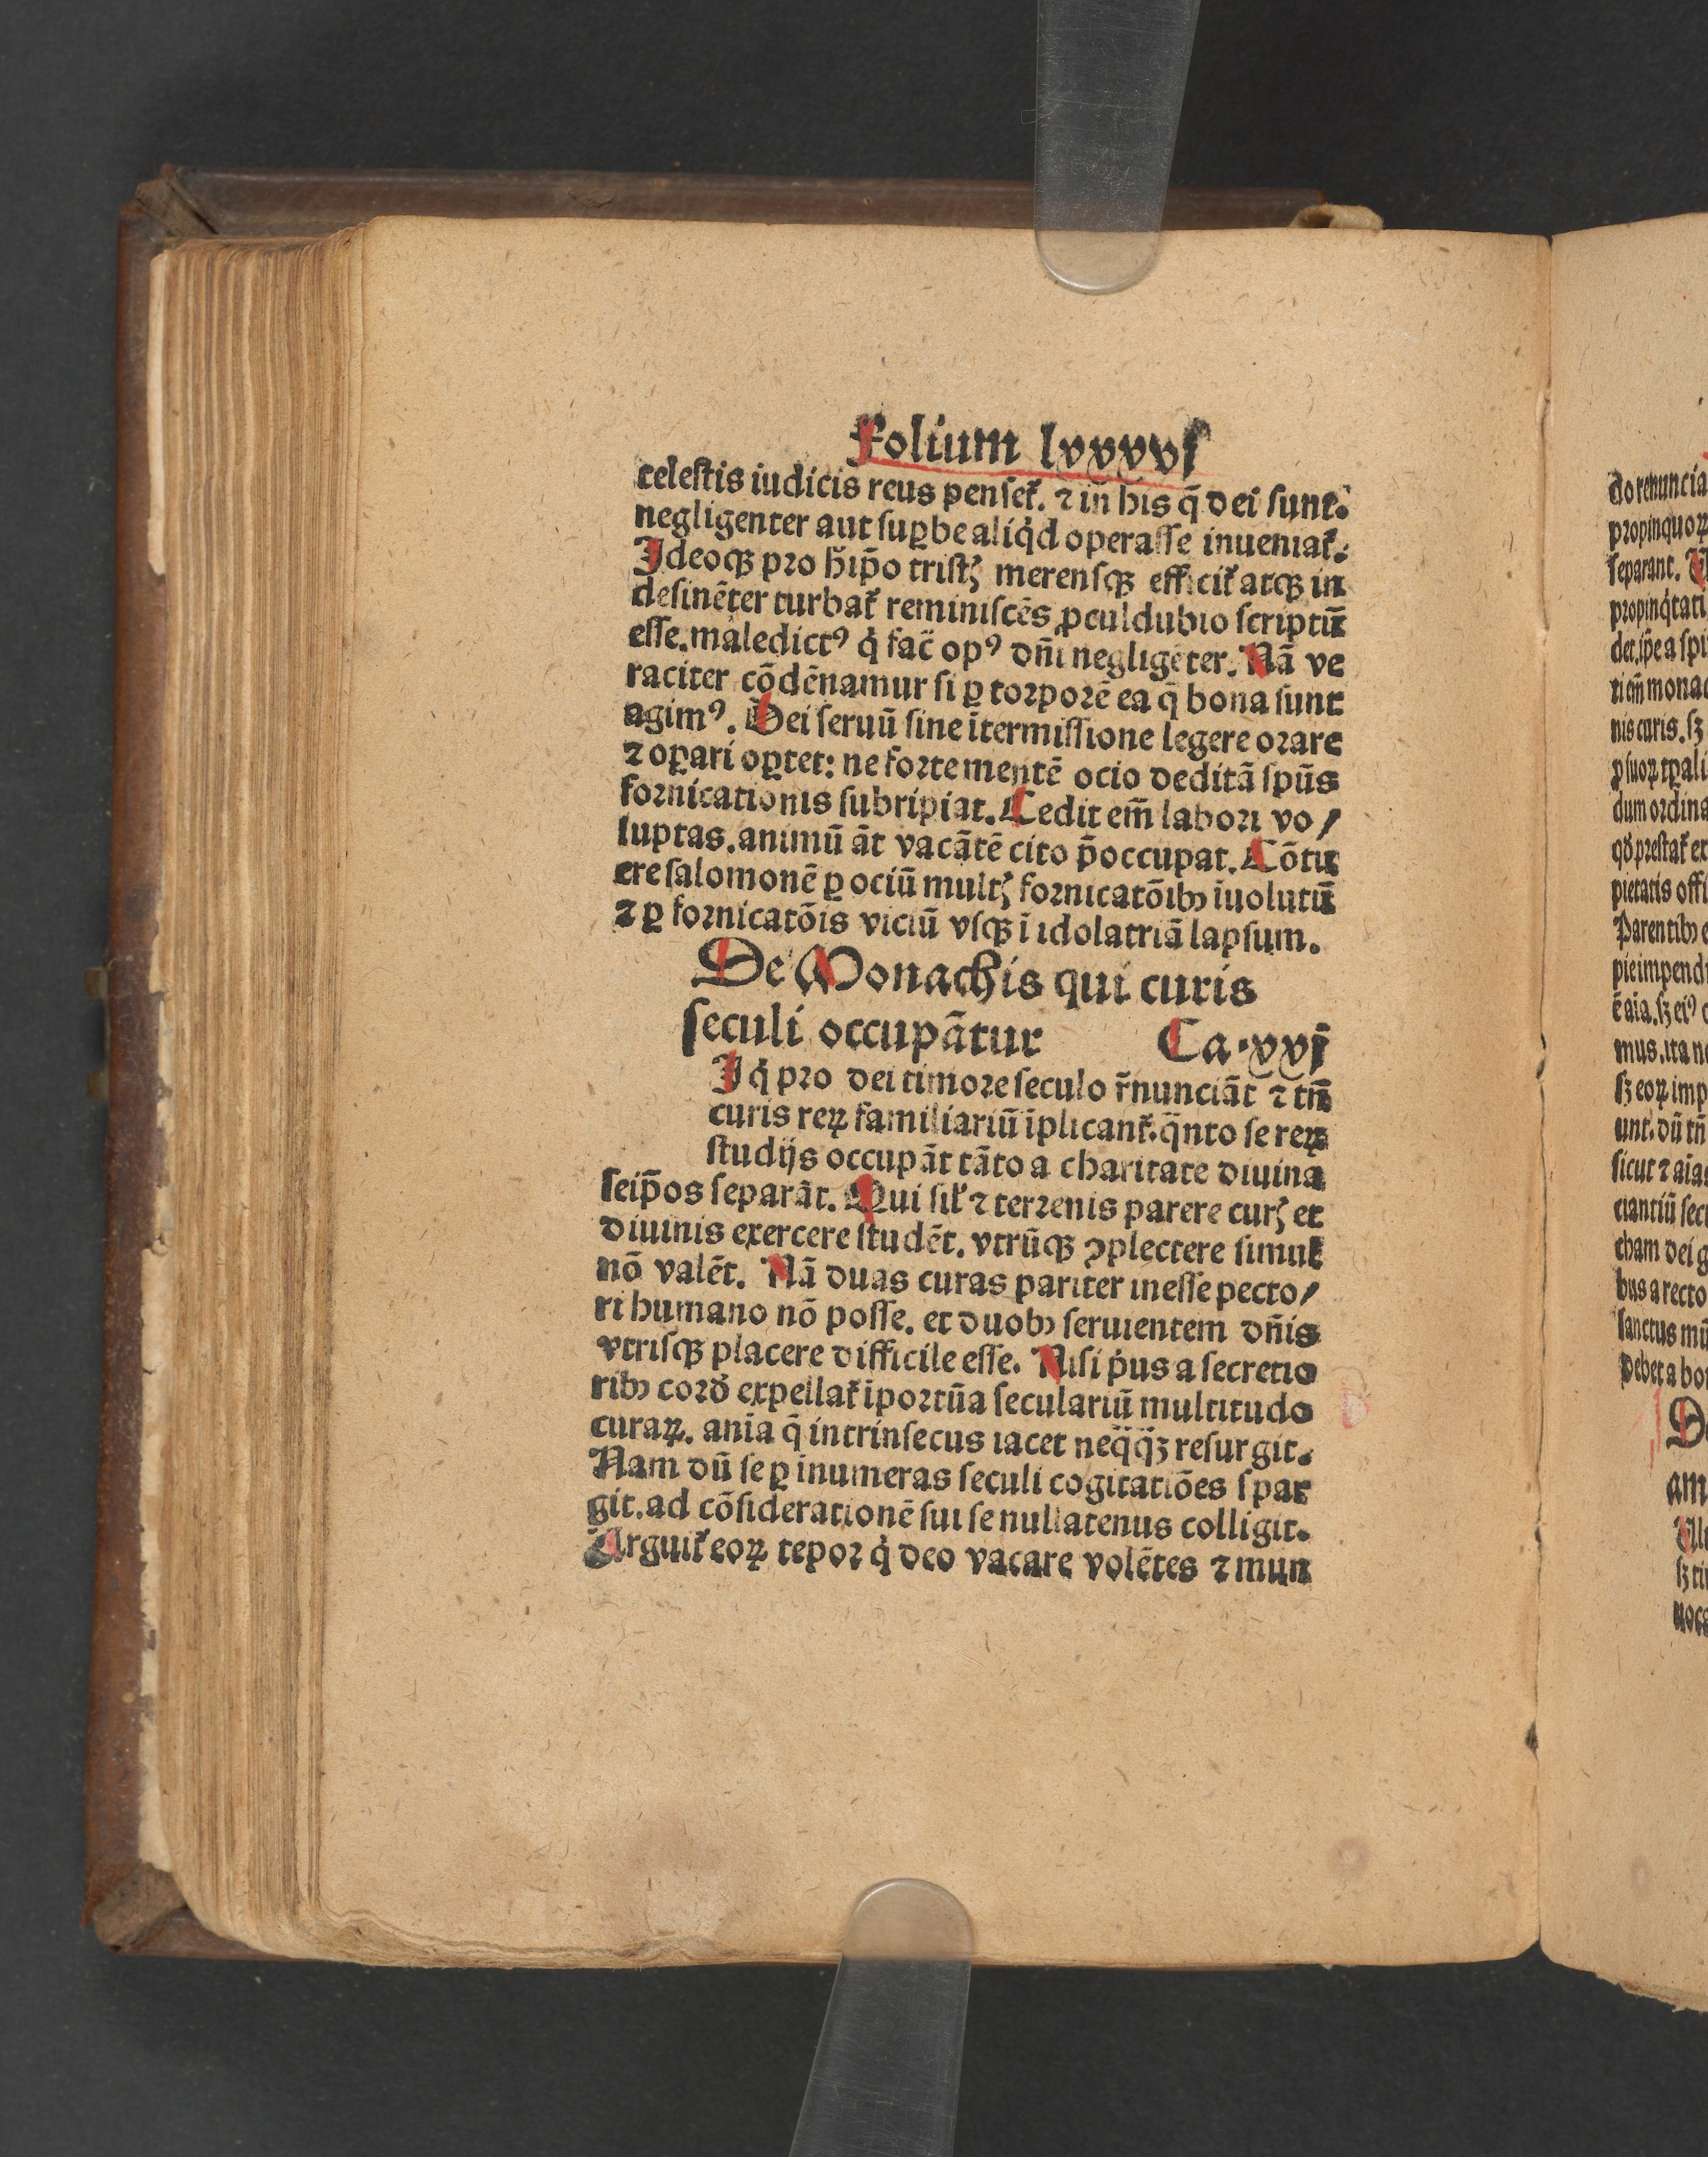 Folium lxxxxvſ
celeſtis iudicis reus penſet᷑. ⁊ in̄ his q̄ dei ſunt.
negligenter aut ſuꝑbe aliq̇d operaſſe inueniat᷑:
Ideoqꝫ pro h̄ip̄o triſtꝭ merenſqꝫ efficit᷑ atqꝫ in
deſinēter turbat᷑ reminiſcēs ꝓculdubio ſcriptū
eſſe. maledictꝰ q̇ fac̄ opꝰ dn̄i negligēter. Nā ve
raciter cōdēnamur ſi ꝑ torporē ea q̄ bona ſunt
agimꝰ. Dei ſeruū ſine ītermiſſione legere orare
⁊ oꝑari oꝑtet: ne forte mentē ocio deditā ſpūs
fornicationis ſubripiat. Cedit em̄ labori vo/
luptas. animū āt vacātē cito p̄occupat. Cōtu
ere ſalomonē ꝑ ociū multꝭ fornicatōibꝫ īuolutū
⁊ ꝑ fornicatōis viciū vſqꝫ ī idolatriā lapſum.
De Monachis qui curis
ſeculi occupātur Ca.xvī
I q̇ pro dei timore ſeculo r̄nunciāt ⁊ tn̄
curis reꝝ familiariū īplicant᷑. q̄nto ſe reꝝ
ſtudijs occupāt tāto a charitate diuina
ſeip̄os ſeparāt. Qui ſil̓ ⁊ terrenis parere curꝭ et
diuinis exercere ſtudēt. vtrūqꝫ ꝯplectere ſimul
nō valēt. Nā duas curas pariter ineſſe pecto/
ri humano nō poſſe. et duobꝫ ſeruientem dn̄is
vtriſqꝫ placere difficile eſſe. Niſi p̓us a ſecretio
ribꝫ cord̓ expellat᷑ iportūa ſeculariū multitudo
curaꝝ. anīa q̄ intrinſecus iacet neq̄q̄ꝫ reſurgit.
Nam dū ſe ꝑ inumeras ſeculi cogitatiōes ſpar
git. ad cōſiderationē ſui ſe nullatenus colligit.
Arguit᷑ eoꝝ tepor q̇ deo vacare volētes ⁊ mun